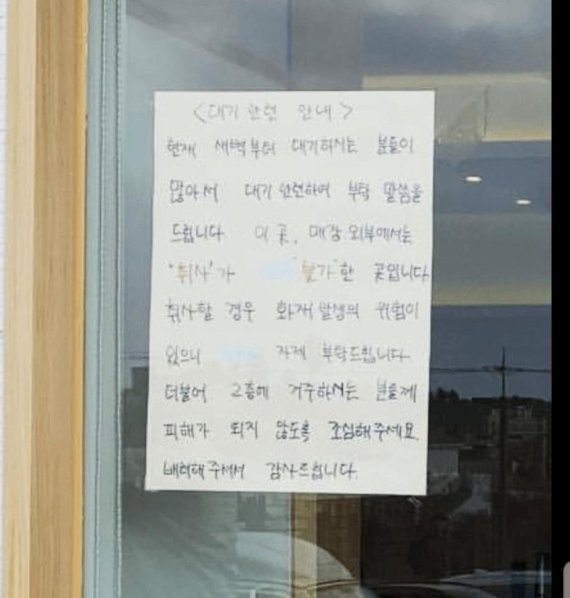 <대기 관련 안내>
현재 새벽부터 대기하시는 분들이
많아서 대기 관련하여 부탁 말씀을
드립니다 이 곳, 매장 외부에서는
'취사'가 '불가'한 곳입니다
취사할 경우 화재 발생의 위험이
있으니 자제 부탁드립니다.
더불어 2층에 거주하시는 분들께
피해가 되지 않도록 조심해주세요.
배려해주셔서 감사드립니다.